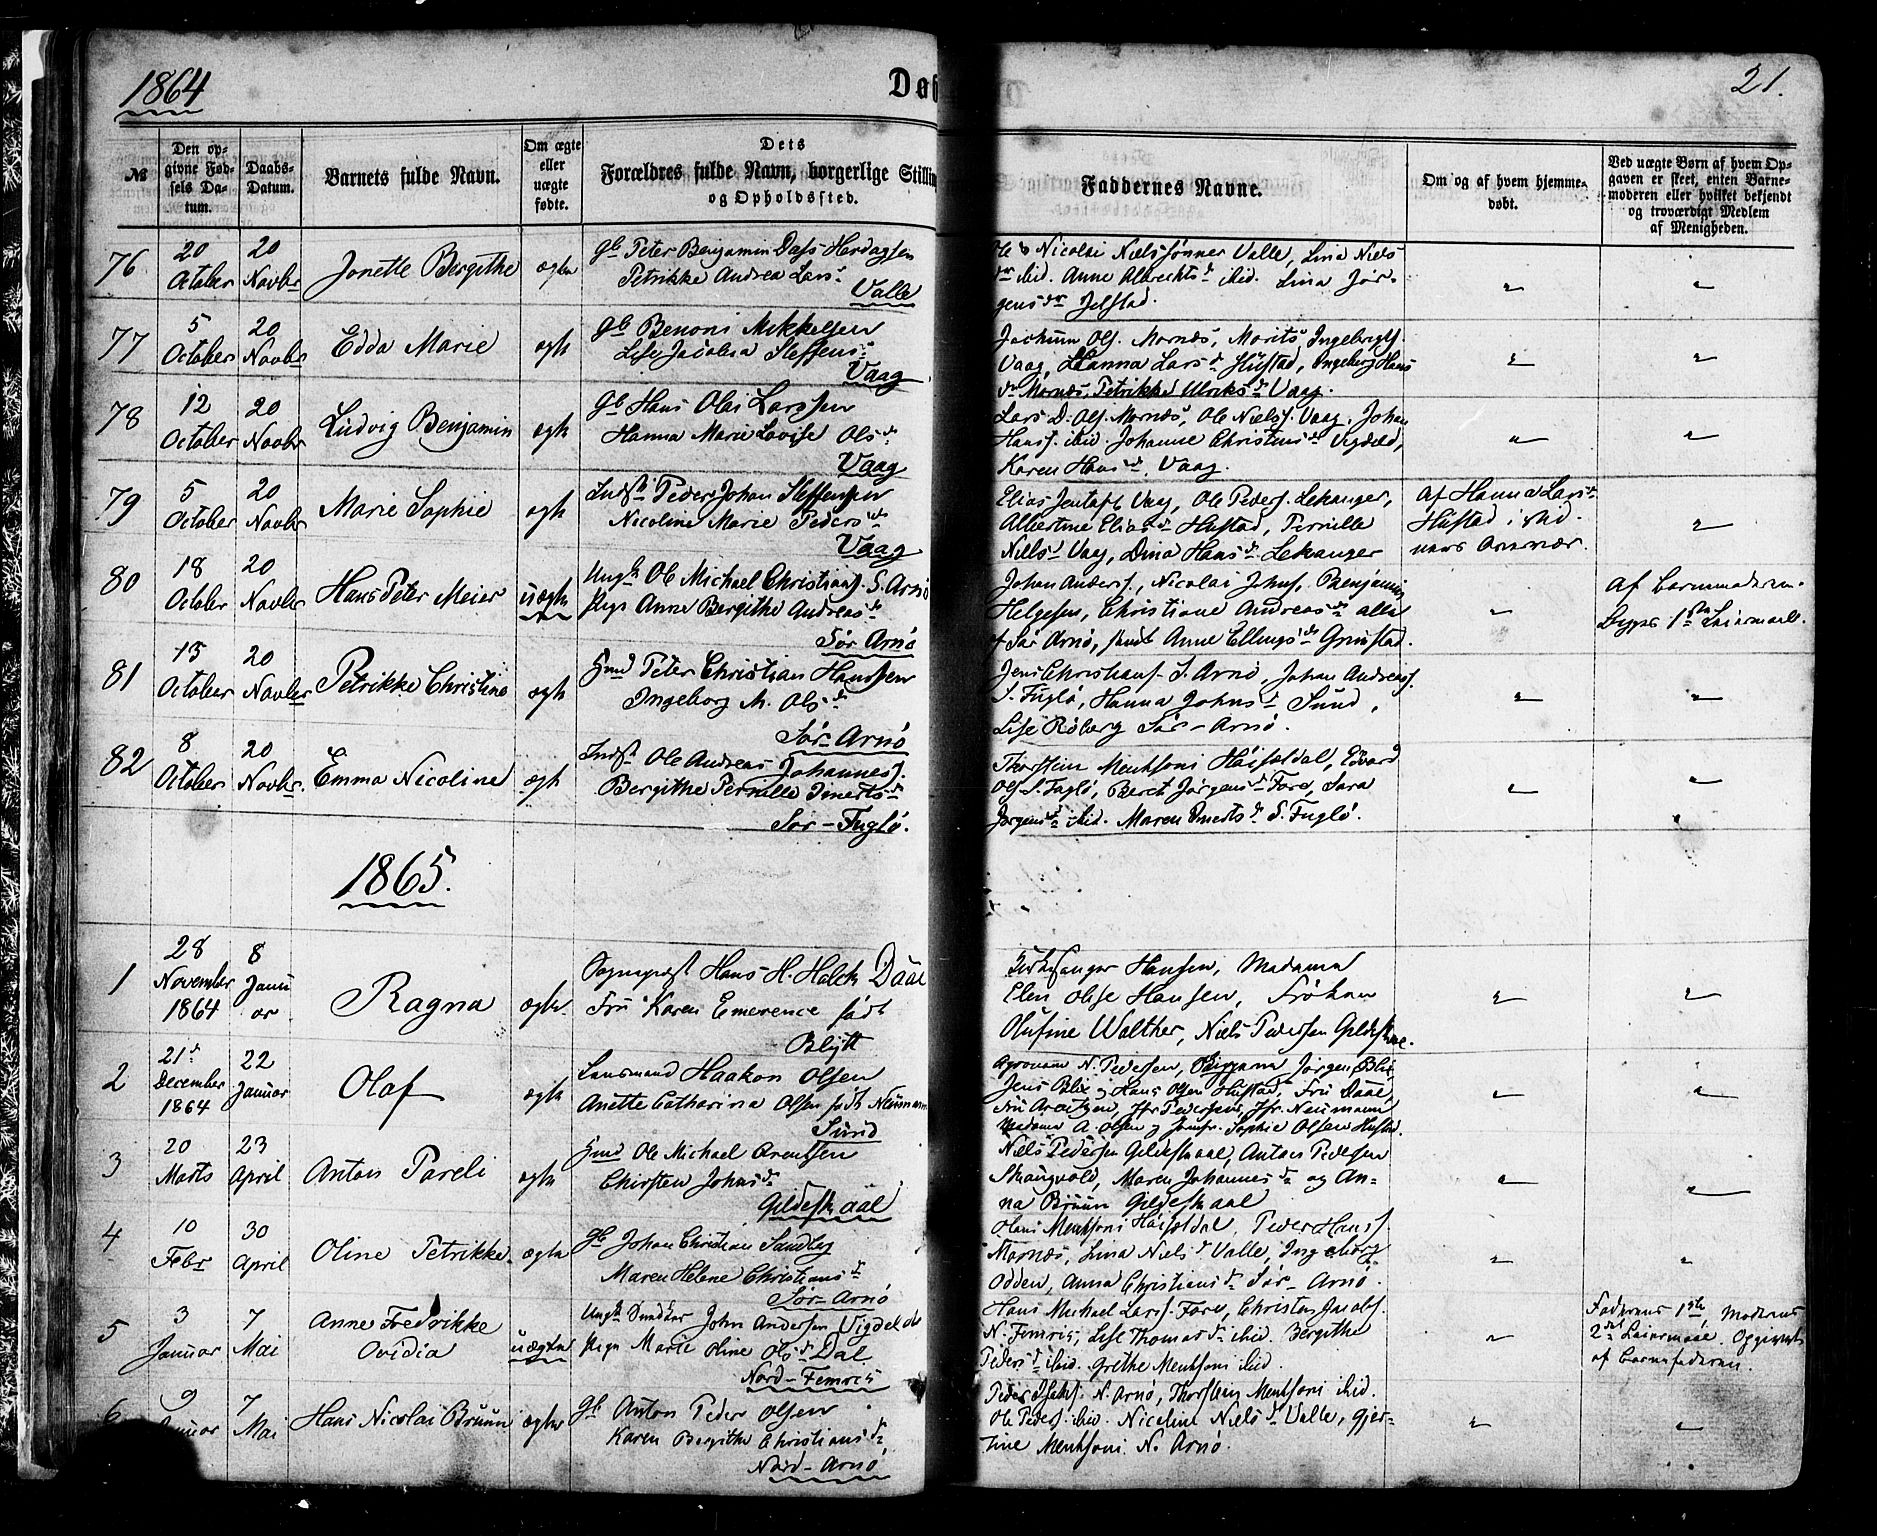 1864
Døb
21.
№
Den opgivne Fødsels Datum.
Daabs-Datum.
Barnets fulde Navn.
Om ægte eller uægte fødte.
Dets
Forældres fulde Navn, borgerlige Stillin
og Opholdssted.
Faddernes Navne.
Om og af hvem hjemmedøbt.
Ved uægte Børn af hvem Opgaven er skeet, enten Barnemoderen eller hvilket bekjendt og troværdigt Medlem af Menigheden.
76 20 October 20 Novbr Jonette Bergithe ægte
Gb Peter Benjamin Dass Herdagsen
Petrikke Andrea Lars
Valle
Ole & Nicolai Nielssønner Valle, Lina Niels
dr ibid. Anne Albrechts d ibid. Lina Jør-
gens dr Jelstad.
77 5 October 20 Novbr Edda Marie ægte
Gb Benoni Mikkelsen
Lise Jacobia Steffens
Vaag
Jochum Ols. Mornæs, Morits Ingebrigts.
Vaag, Hanna Lars d Hustad, Ingeborg Hans
dr Mornæs, Petrikke Ulriks d Vaag.
78 12 October 20 Novbr Ludvig Benjamin ægte
Gb Hans Olai Larssen
Hanna Marie Lovise Ols d
Vaag
Lars D. Ols. Mornæs, Ole Niels. Vaag, Johan
Hans. ibid. Johanne Christens d Vigdel,
Karen Hans d, Vaag.
79 5 October 20 Novbr Marie Sophie ægte
Indst Peder Johan Steffensen
Nicoline Marie Peders d
Vaag
Elias Jentoft Vaag, Ole Peders. Lekanger,
Albertine Elias d Hustad, Pernille
Niels d Vaag, Dina Hans d Lekanger
Af Hanna Lars d
Hustad
80 18 October 20 Novbr Hans Peter Meier uægte
Ungk Ole Michael Christians. S. Arnø
Pige Anne Bergithe Andreas d
Sør Arnø
Johan Anders., Nicolai Johns., Benjamin
Helgesen, Christiane Andreas d alle
f Sør Arnø, samt Anne Ellings d Grimstad.
Af Barnemoderen.
Begges 1ste Leiermaal.
81 13 October 20 Novbr Petrikke Christine ægte
Gmd Peter Christian Hanssen
Ingeborg M. Ols d
Sør-Arnø
Jens Christians. S. Arnø, Johan Andreas.
S. Fuglø, Hanna Johns d Sund,
Lise Røberg Sør-Arnø.
82 8 October 20 Novbr Emma Nicoline ægte
Indst Ole Andreas Johannes.
Bergithe Pernille Imerts d
Sør-Fuglø.
Thorstein Menksoni Høisøldal, Edvard
Ols. S. Fuglø, Beret Jørgens d Fore, Sara
Jørgens d ibid. Maren Imerts d S. Fuglø.
1865.
1 28 November 1864 8 Januar Ragna ægte
Sognepræst Hans H. Halck Daae
Fru Karen Emerence født
Blytt
Kirkesanger Hansen, Madame
Elen Olise Hansen, Frøken
Olufine Walther, Niels Pedersen Gildeskaae.
2 21d December 1864 22 Januar Olaf ægte
Lensmand Haakon Olsen
Anette Catharina Olsen født Neumann
Sund
Agronom N. Pedersen, Jørgen Blix,
Jens Blix og Hans Olsen Hustad, Fru Daae,
Fru Arentzen, Jfr Pedersen, Jfr. Neumann
Madame A. Olsen og Jomfr. Sophie Olsen Hustad.
3 20 Marts 23 April Anton Pareli ægte
Gmd Ole Michael Arentsen
Chirsten Johns d
Gildeskaal
Niels Pedersen Gildeskaal, Anton Pedersen
Skaugvold, Maren Johannes d og An-
na Bruun Gildeskaal
4 10 Febr 30 April Oline Petrikke ægte
Gb Johan Christian Sandberg
Maren Helene Christians d
Sør-Arnø
Hans Menksoni Høisøldal, Peder Hans.
Mornæs, Lina Niels d Valle, Ingeborg
Odden, Anna Christians d Sør-Arnø.
5 3 Januar 7 Mai Anne Fredrikke
Ovidia uægte
Ungk John Andersen Vigdel
Pige Marie Oline Ols d Dal
Nord-Femris
Hans Michael Lars. Fore, Christen Jacobs.
N. Femris, Lise Thomas d ibid. Bergithe
Peders d ibid. Grethe Menksoni ibid.
Faderens 1ste, Moderens
2det Leiermaal. Opgivet
af Barnefaderen.
6 9 Januar 7 Mai Hans Nicolai Bruun ægte
Gb Anton Peder Olsen
Karen Bergithe Christians d,
Nord-Arnø
Peder Isaks. N. Arnø, Thorsten Menksoni ibid.
Ole Peders. ibid. Nicoline Niels d Valle, Gjer-
tine Menksoni N. Arnø.